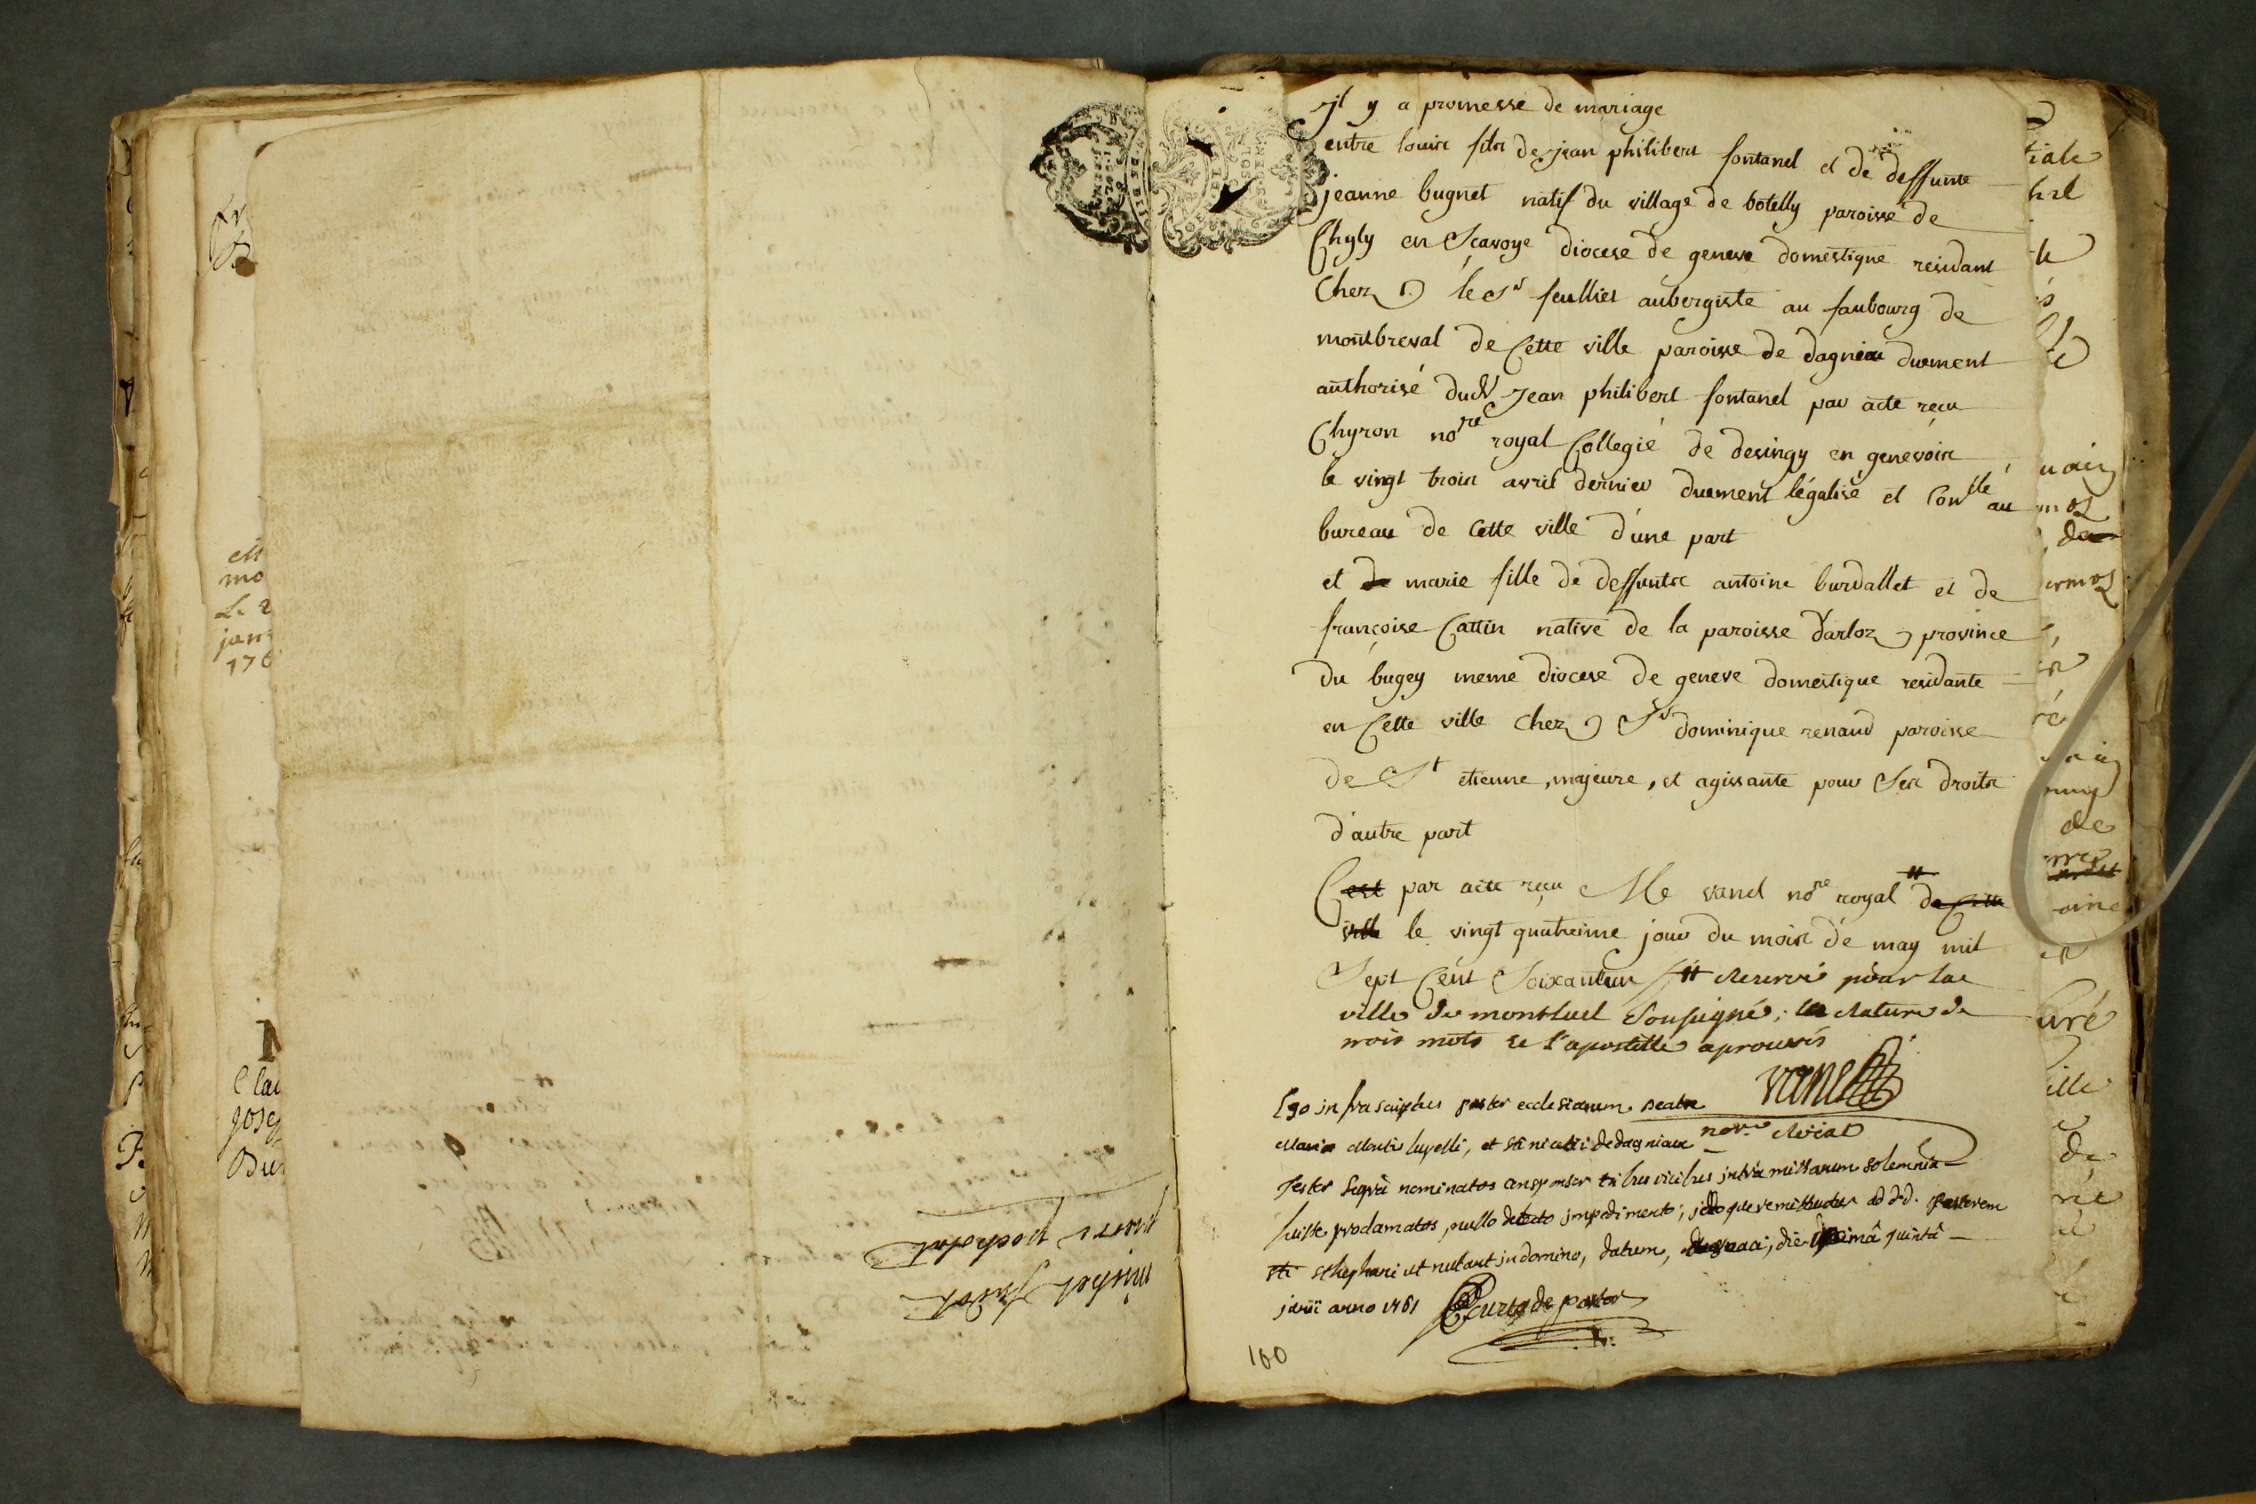 jl y a promesse de mariage
entre louis fils de jean philibert fontanel et de deffunte
jeanne bugnet natif du village de botelly paroisse de
Chyly en Scavoye diocese de geneve domestique residant
Chez le Sr feullier aubergiste au faubourg de
montbreval de Cette ville paroisse de dagnieu duement
authorisé dudt Jean philibert fontanel par acte recu
Chyron nore royal Collegié de desingy en genevois
le vingt trois avril dernier duement légalisé et Conlle au
bureau de Cette ville d'une part
et de marie fille de deffunts antoine burdallet et de
françoise Cattin native de la paroisse d'arloz province
du bugey meme diocese de geneve domestique residante
en Cette ville Chez Sr dominique renaud paroisse
de St etienne, majeure, et agissante pour Ses droits
d'autre part
Cest par acte reçu Me vanel nore royal # de Cette
ville le vingt quatreime jour du mois de may mil
Sept Cent Soixanteun # reservé pour la
ville de montluel Soussigné; la rature de
trois mots et l'apostille aprouvés
vanel
nore roial
Ego infrascriptus pastor ecclesiarum beatae
Mariae Montis lupelli, et sti nicolai de dagniaux
testor supra nominatos sponsos tribus vicibus intra missarum solemnia
fuisse proclamatos, nullo detecto impedimento; ad d.d. pastorem
sti sthephani ut nubant in domino, datum, die quintâ
junii arno 1761
pastor
160
Michel
pierre pocholat
Et
mo
Le 2
janv
176
Clau
Jose
Bur